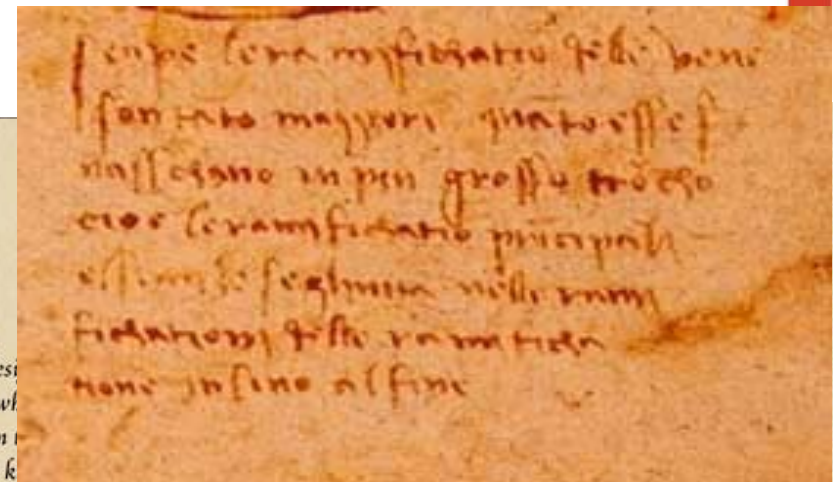 senpe le ramifichatiō delle vene
son tāto maggiori quāto esse s
nasschano in piu grosso trōcho
cioe le ramifichatiō principali
seghuita nelle rami
fichationi delle ramificha
tione insino al fine